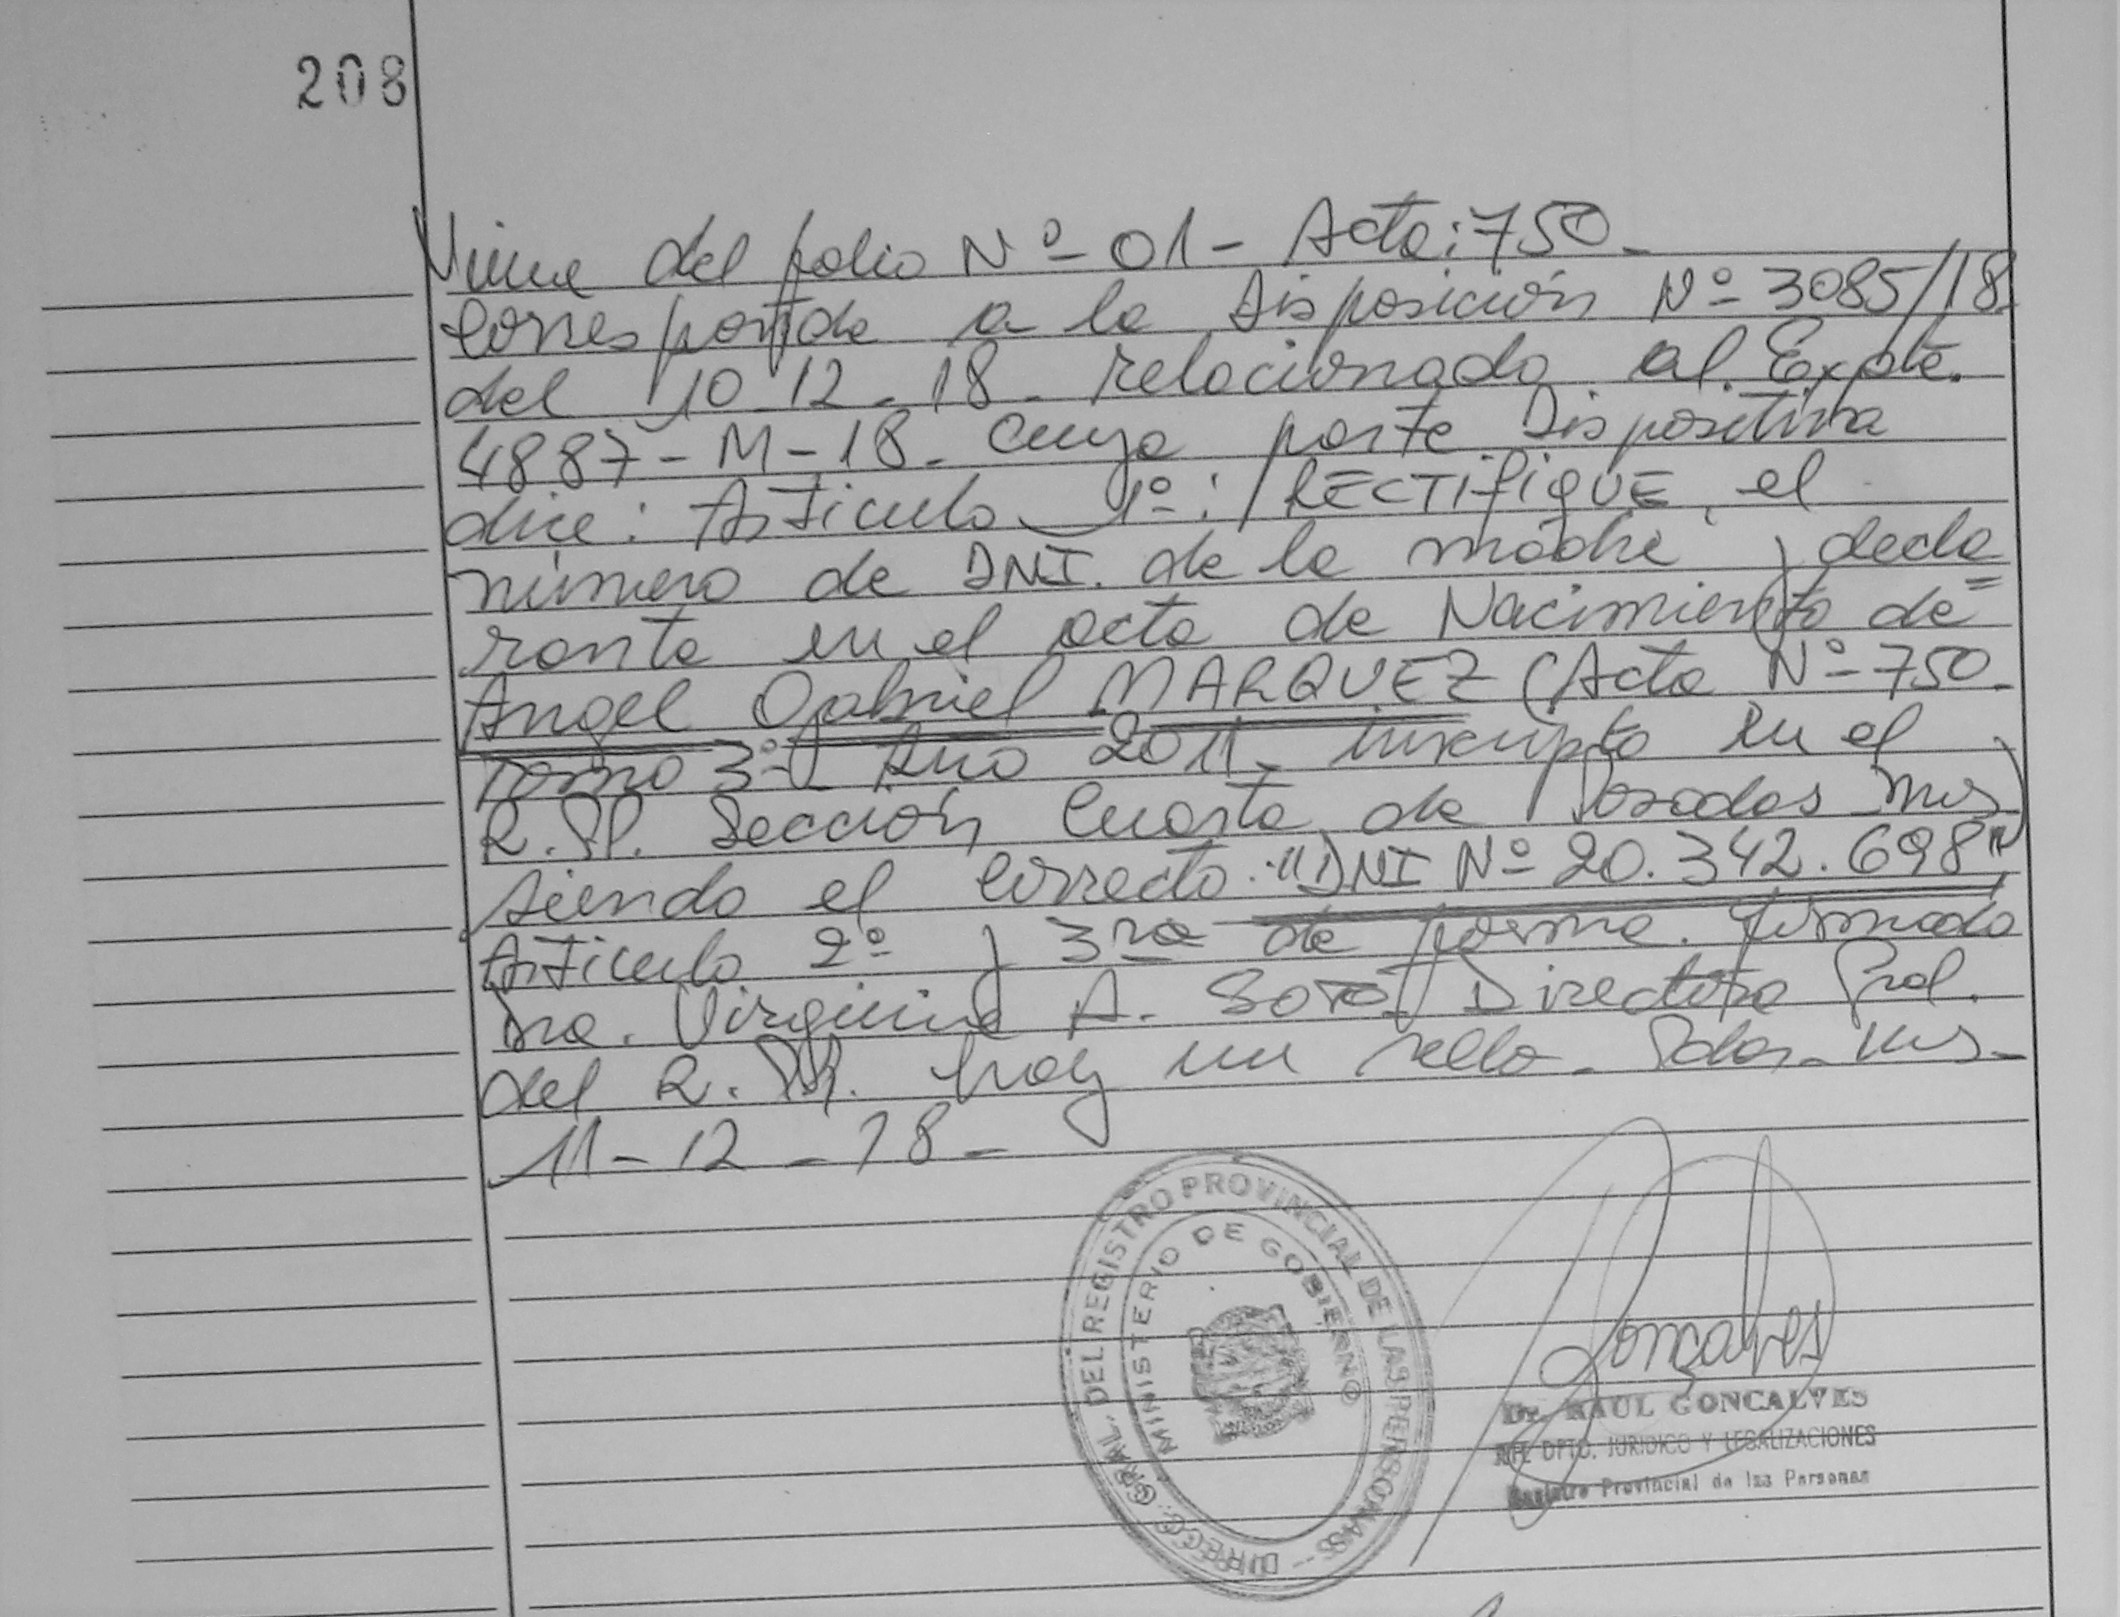 208
Viene del folio Nº 01 - Acta: 750 -
Corresponde a la Disposición Nº 3085/18
del 10-12-18 - relacionado al Expte.
4887-M-18 - cuya parte Dispositiva
dice: Articulo 1º: RECTIFIQUE, el
número de DNI. de la madre y decla
rante en el acta de Nacimiento de =
Angel Gabriel MARQUEZ (Acta Nº 750 -
Tomo 3º - Año 2011 - inscripto en el
R.P.P. Sección Cuarta de Posadas Mnes)
siendo el correcto: "DNI Nº 20.342.698"
Articulo 2º y 3ra de forma. firmado
Dra. Virginia A. Soto - Directora Pcial.
del R.P.P. hay un sello - Pdas. Mnes -
11-12-18 -
DIRECC. GRAL. DEL REGISTRO PROVINCIAL DE LAS PERSONAS -
MINISTERIO DE GOBIERNO
Goncalves
Dr. RAUL GONCALVES
DPTO. JURIDICO Y LEGALIZACIONES
Registro Provincial de las Personas